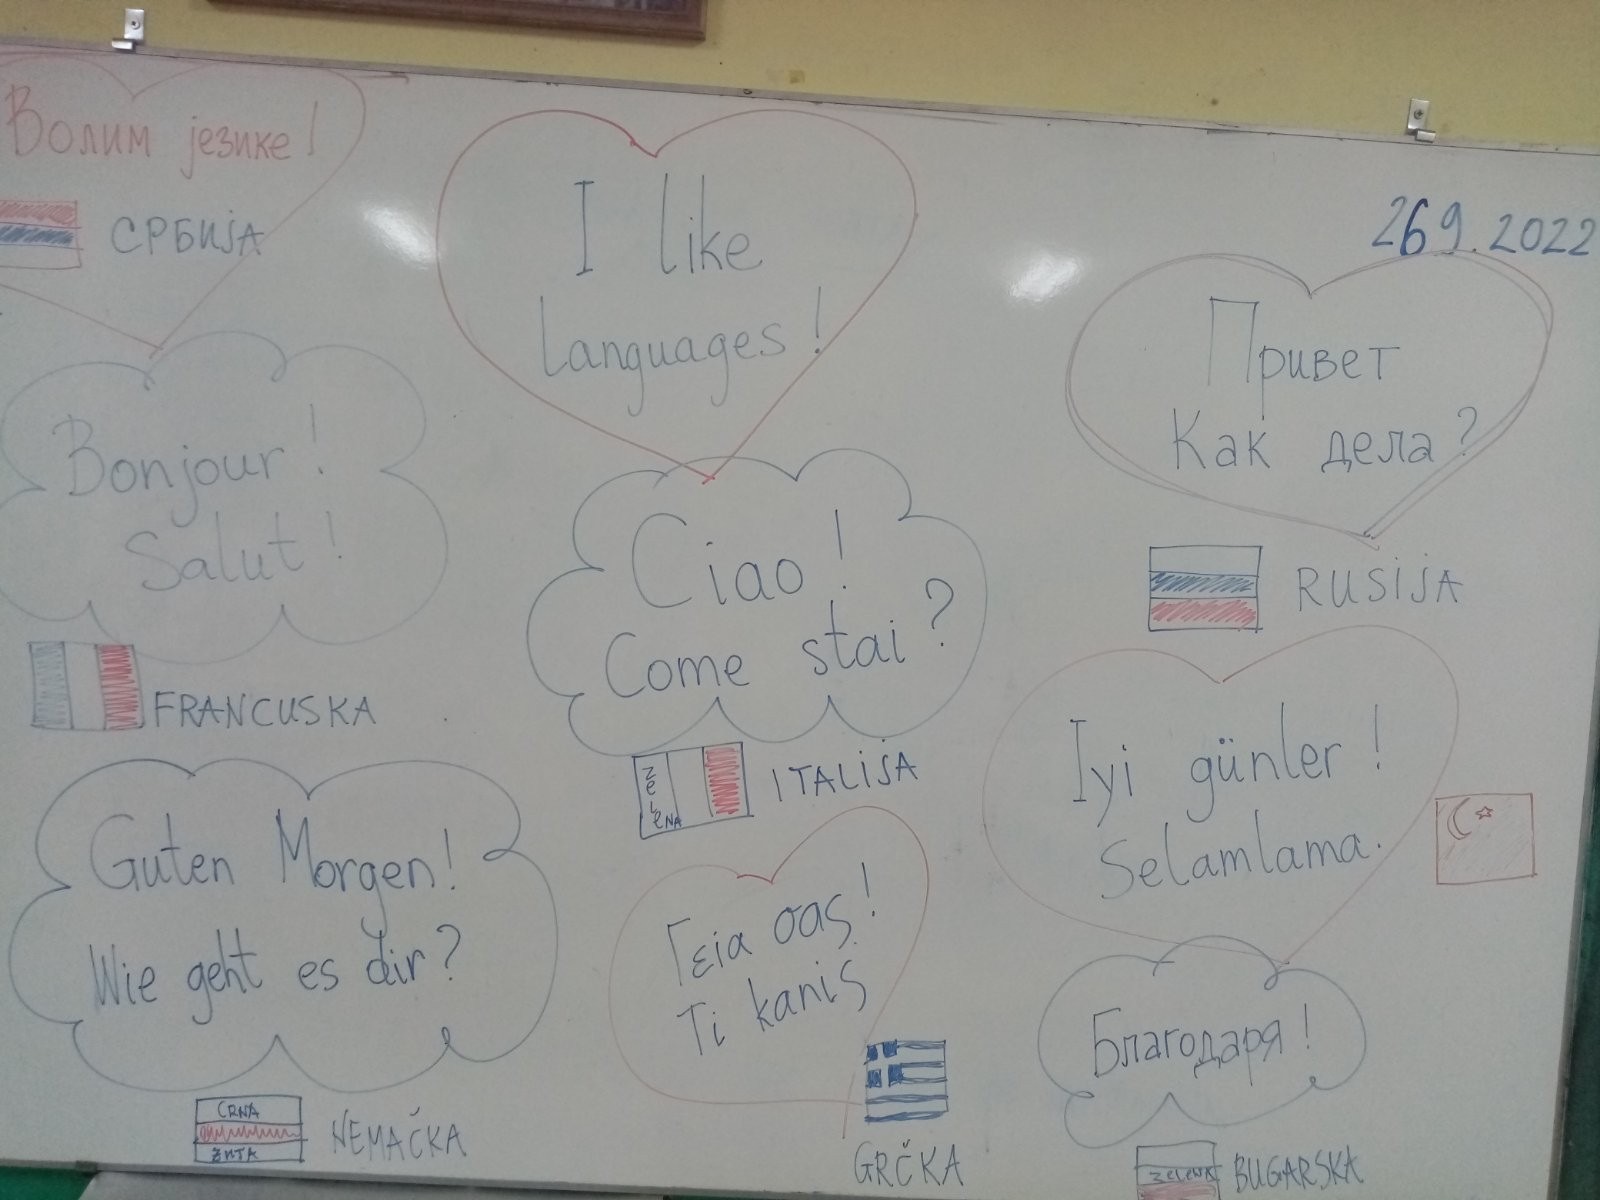 Волим језике!
СРБИЈА
I like
languages!
26 9. 2022
Привет
Как дела?
RUSIJA
Bonjour!
Salut!
FRANCUSKA
Ciao!
Come stai?
zelena
ITALIJA
Iyi günler!
Selamlama.
Guten Morgen!
Wie geht es dir?
CRNA
ŽUTA
NEMAČKA
Γεια σας!
Ti kaniς
GRČKA
Благодаря!
ZELENA
BUGARSKA